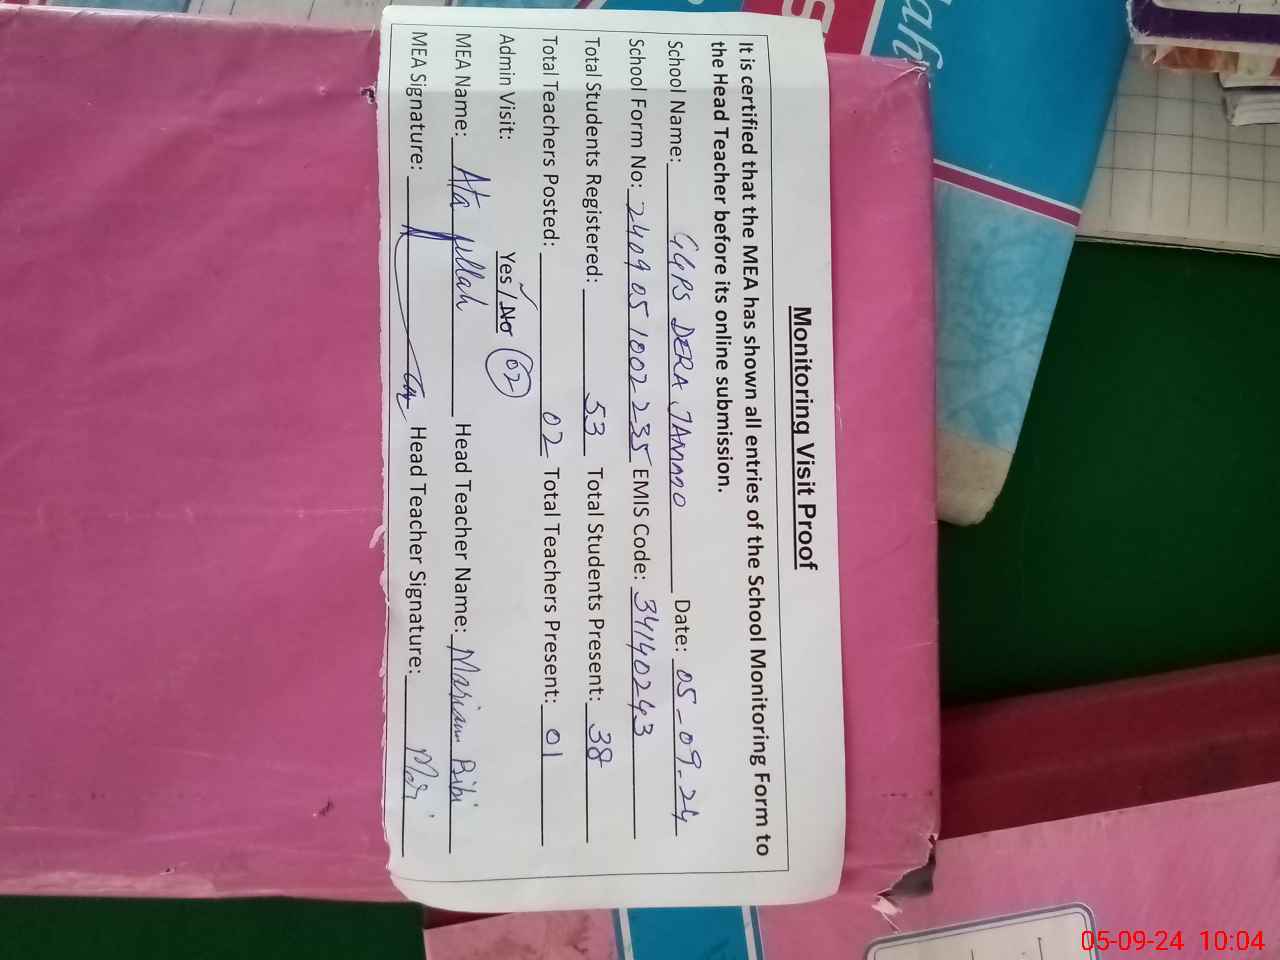 Monitoring Visit Proof
It is certified that the MEA has shown all entries of the School Monitoring Form to
the Head Teacher before its online submission.
School Name: GGPS DERA JAMMO Date: 05-09-24
School Form No: 2409051002235 EMIS Code: 34140243
Total Students Registered: 53 Total Students Present: 38
Total Teachers Posted: 02 Total Teachers Present: 01
Admin Visit: Yes / No 02
MEA Name: Ata ullah Head Teacher Name: Mariam Bibi
MEA Signature: Head Teacher Signature: Mari
ah
05-09-24 10:04